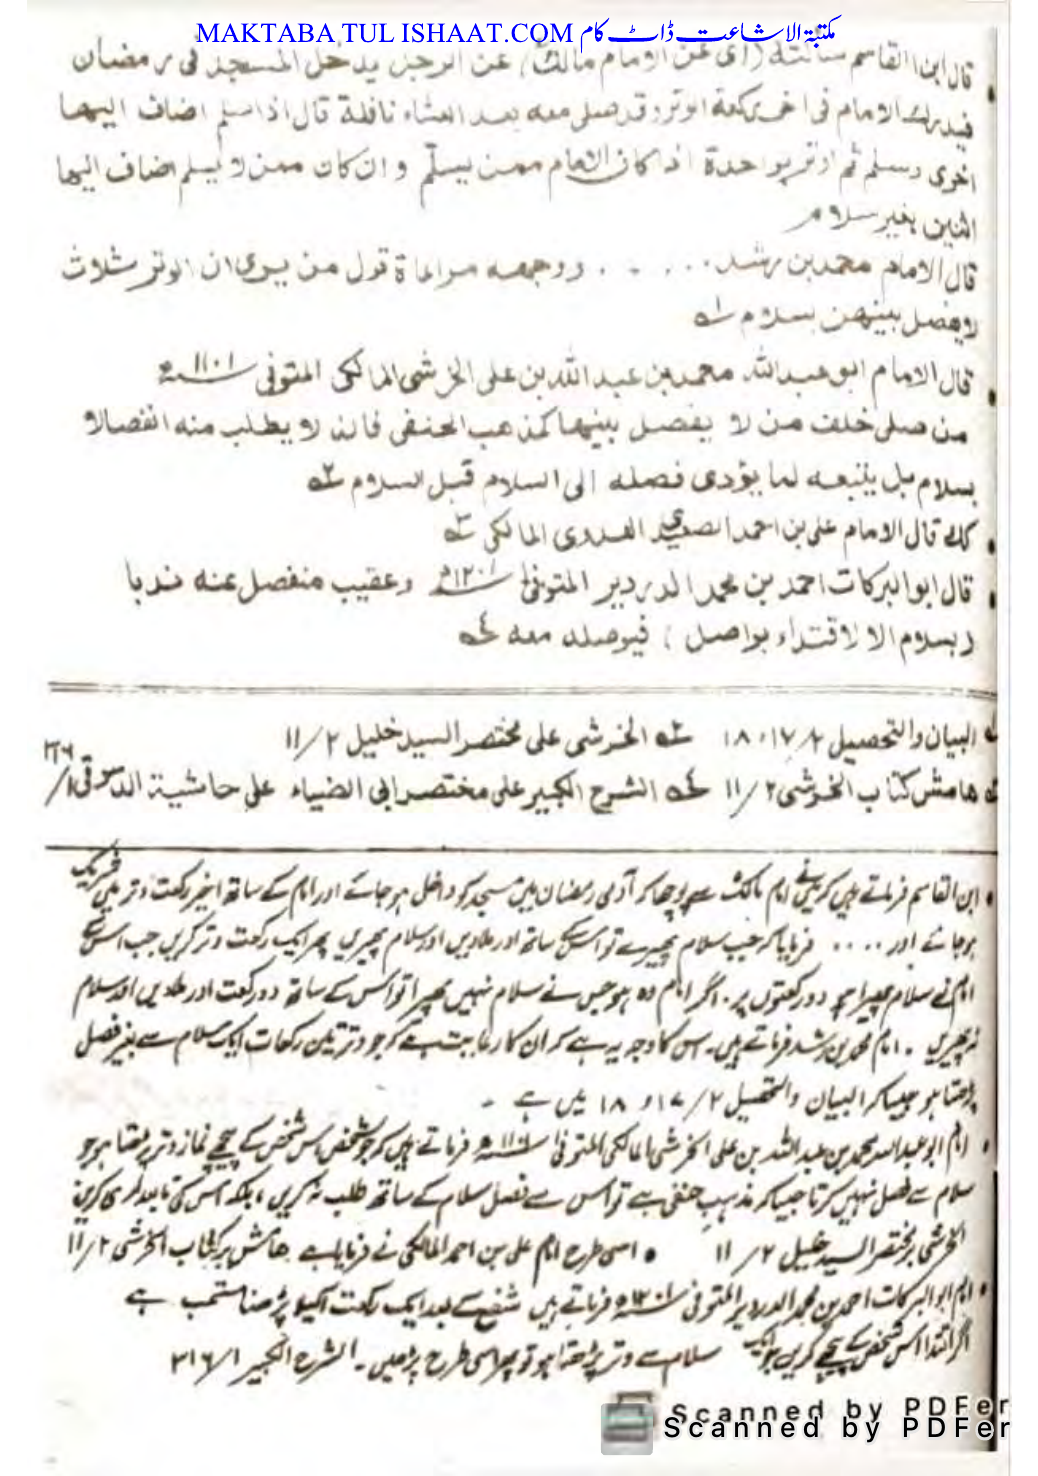 MAKTABA TUL ISHAAT.COM مکتبۃ الاشاعت ڈاٹ کام
قال ابن القاسم سألته (ای عن الامام مالک) عن الرجل یدخل المسجد فی رمضان
فیدرک الامام فی اخر رکعة الوتر وقد صلی معه بعد العشاء نافلة قال اذا سلم اضاف الیها
اخری وسلم ثم اوتر بواحدة اذا کان الامام ممن یسلّم وان کان ممن لا یسلم اضاف الیها
اثنین بغیر سلام
قال الامام محمد بن رشد . . . . . ووجهه مراعاة قول من یری ان الوتر ثلاث
لا یفصل بینهن بسلام ١ه
قال الامام ابو عبد الله محمد بن عبد الله بن علی الخرشی المالکی المتوفی ١١٠١ھ
من صلی خلف من لا یفصل بینها کمذهب الحنفی فانه لا یطلب منه انفصالا
بسلام بل یتبعه لما یؤدی فصله الی السلام قبل السلام ٢ه
کذا قال الامام علی بن احمد الصعیدی العدوی المالکی ٣ه
قال ابو البرکات احمد بن محمد الدردیر المتوفی ١٢٠١ھ وعقیب منفصل عنه ندبا
(بسلام الا لاقتداء بواصل) فیوصله معه ٤ه
البیان والتحصیل ٢/ ١٧، ١٨ ٢ه الخرشی علی مختصر السید خلیل ٢/ ١١
هامش کتاب الخرشی ٢/ ١١ ٤ه الشرح الکبیر علی مختصر ابی الضیاء علی حاشیة الدسوقی ١/ ٣١٦
ابن القاسم فرماتے ہیں کہ میں نے امام مالک سے پوچھا کہ آدمی رمضان میں مسجد کو داخل ہو جائے اور امام کے ساتھ اخیر رکعت وتر میں شریک
ہو جائے اور .... فرمایا کہ جب سلام پھیرے تو اس کے ساتھ اور ملا دیں اور سلام پھیریں پھر ایک رکعت وتر کریں جب اس کے
امام نے سلام پھیرا ہو دو رکعتوں پر۔ اگر امام وہ ہو جس نے سلام نہیں پھیرا تو اس کے ساتھ دو رکعت اور ملا دیں اور سلام
نہ پھیریں۔ امام محمد بن رشد فرماتے ہیں۔ اس کا وجہ یہ ہے کہ ان کا رعایت ہے کہ جو وتر تین رکعات ایک سلام سے بغیر فصل
پڑھتا ہو جیسا کہ البیان والتحصیل ٢/ ١٧، ١٨ میں ہے۔
امام ابو عبداللہ محمد بن عبداللہ بن علی الخرشی المالکی المتوفی ١١٠١ھ فرماتے ہیں کہ جو شخص اس شخص کے پیچھے نماز وتر پڑھتا ہو جو
سلام سے فصل نہیں کرتا جیسا کہ مذہب حنفی ہے تو اس سے فصل سلام کے ساتھ طلب نہ کریں، بلکہ اس کی تابعداری کریں
الخرشی بر مختصر السید خلیل ٢/ ١١ • اسی طرح امام علی بن احمد المالکی نے فرمایا ہے ھامش بر کتاب الخرشی ٢/ ١١
امام ابو البرکات احمد بن محمد الدردیر المتوفی ١٢٠١ھ فرماتے ہیں شفع کے بعد ایک رکعت اکیلا پڑھنا مستحب ہے
اگر اقتدا اس شخص کے پیچھے کریں جو ایک سلام سے وتر پڑھتا ہو تو پھر اسی طرح پڑھیں۔ الشرح الکبیر ١/ ٣١٦
Scanned by PDFer
Scanned by PDFer